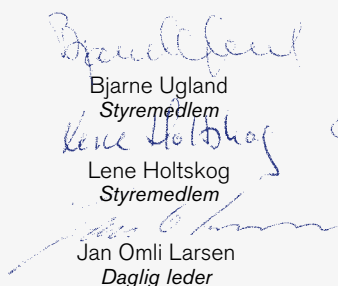 Bjarne Ugland
Styremedlem
Lene Holtskog
Lene Holtskog
Styremedlem
Jan Omli Larsen
Daglig leder